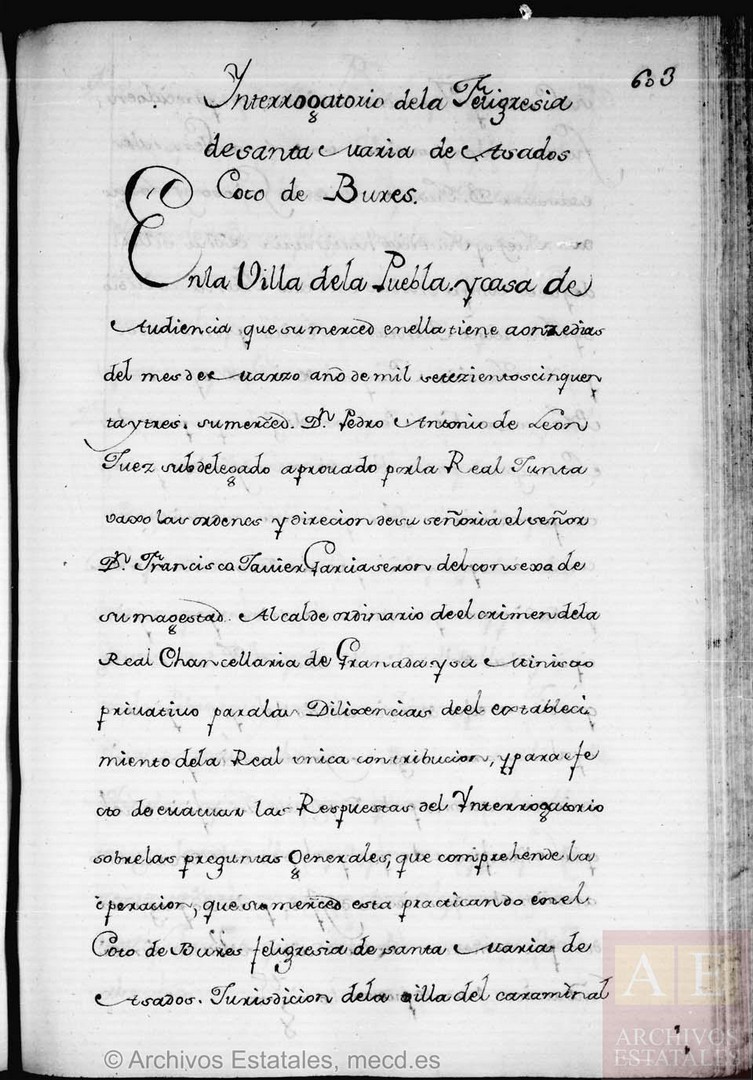 603
Ynterrogatorio dela Feligresia
de santa Maria de Asados
Coto de Bures.
Enla Villa dela Puebla, y casa de
Audiencia que su merced enella tiene a onze dias
del mes de Marzo año de mil setezientos cinquen
ta y tres, su merced. Dn. Pedro Antonio de Leon
Juez subdelegado aprouado por la Real Junta
vaxo las ordenes y direcion de su señoria el señor
Dn. Francisco Javier Garcia seron del consexo de
su magestad. Alcalde ordinario de el crimen dela
Real Chancellaria de Granada y su Ministro
priuatiuo para las Dilixencias de el extableci
miento dela Real vnica contribucion, y para efe
cto de euacuar las Respuestas del Ynterrogatorio
sobre las preguntas Generales, que comprehende la
operacion, que su merced esta practicando en el
Coto de Bures feligresia de santa Maria de
Asados. Jurisdicion dela villa del caraminal
© Archivos Estatales, mecd.es
AE
ARCHIVOS
ESTATALES